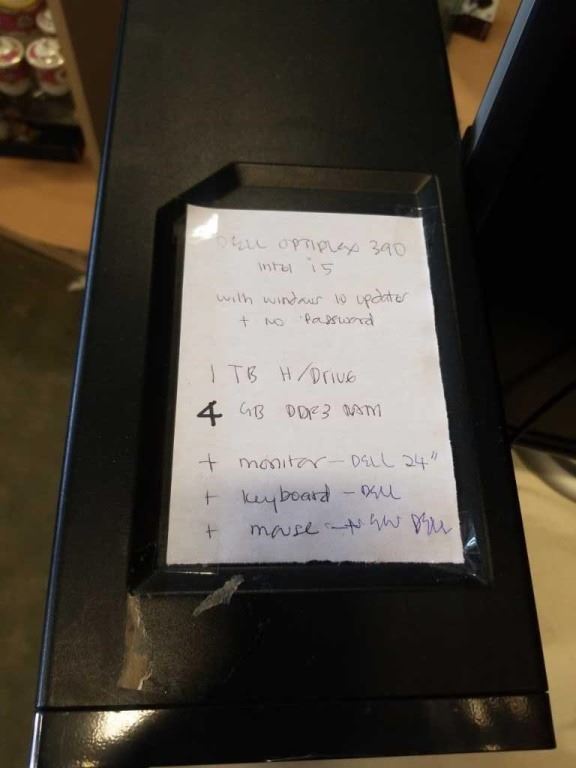 DELL OPTIPLEX 390
intel i5
with windows 10 updates
+ NO Password
1 TB H/DRIVE
4 GB DDR3 RAM
+ monitor - DELL 24"
+ keyboard - DELL
+ mouse - NEW DELL